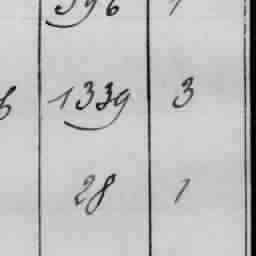 596 1
1339 3
28 1